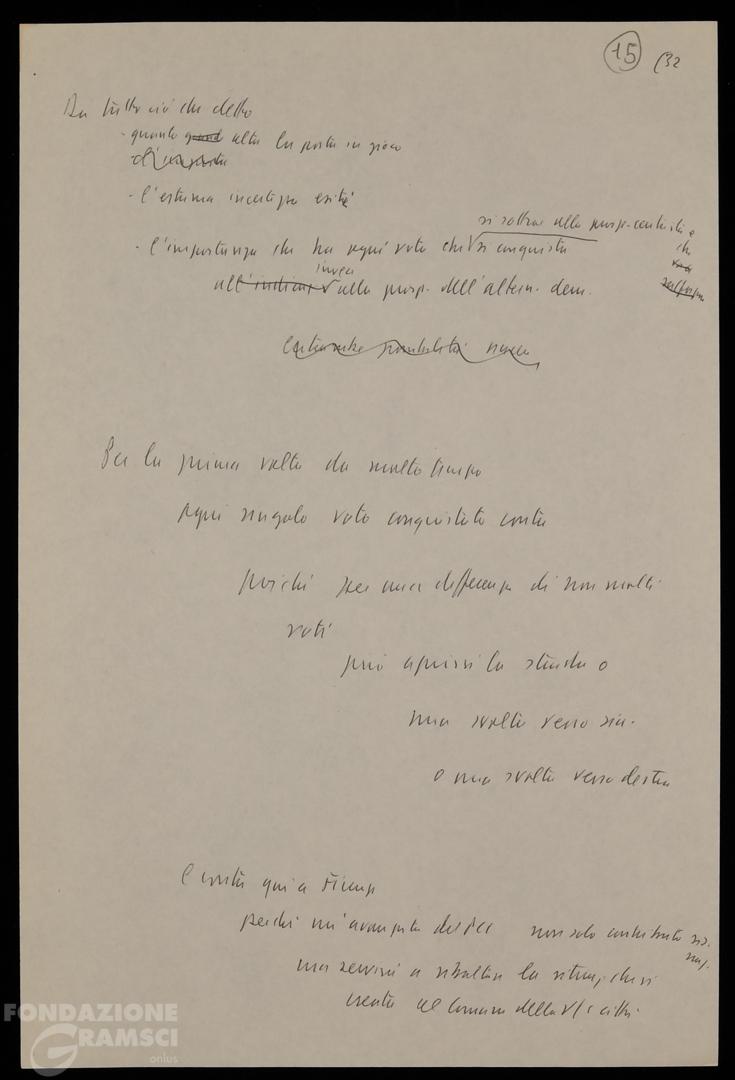 15 (32
Da tutto ciò che detto
- quanto alta la posta in gioco
- l'estrema incertezza esiti
si sottrae alla prosp. centrista e
- l'importanza che ha ogni voto che si conquista
che
invece
all' alla prosp. dell'altern. dem.
Per la prima volta da molto tempo
ogni singolo voto conquistato conta
poiché per una differenza di non molti
voti
può aprirsi la strada o
una svolta verso sin.
o una svolta verso destra
E conta qui a Firenze
perché un'avanzata del PCI non solo contributo sit.
naz.
ma servirà a ribaltare la situaz. che si
creata al Comune della Vs città.
FONDAZIONE
GRAMSCI
onlus